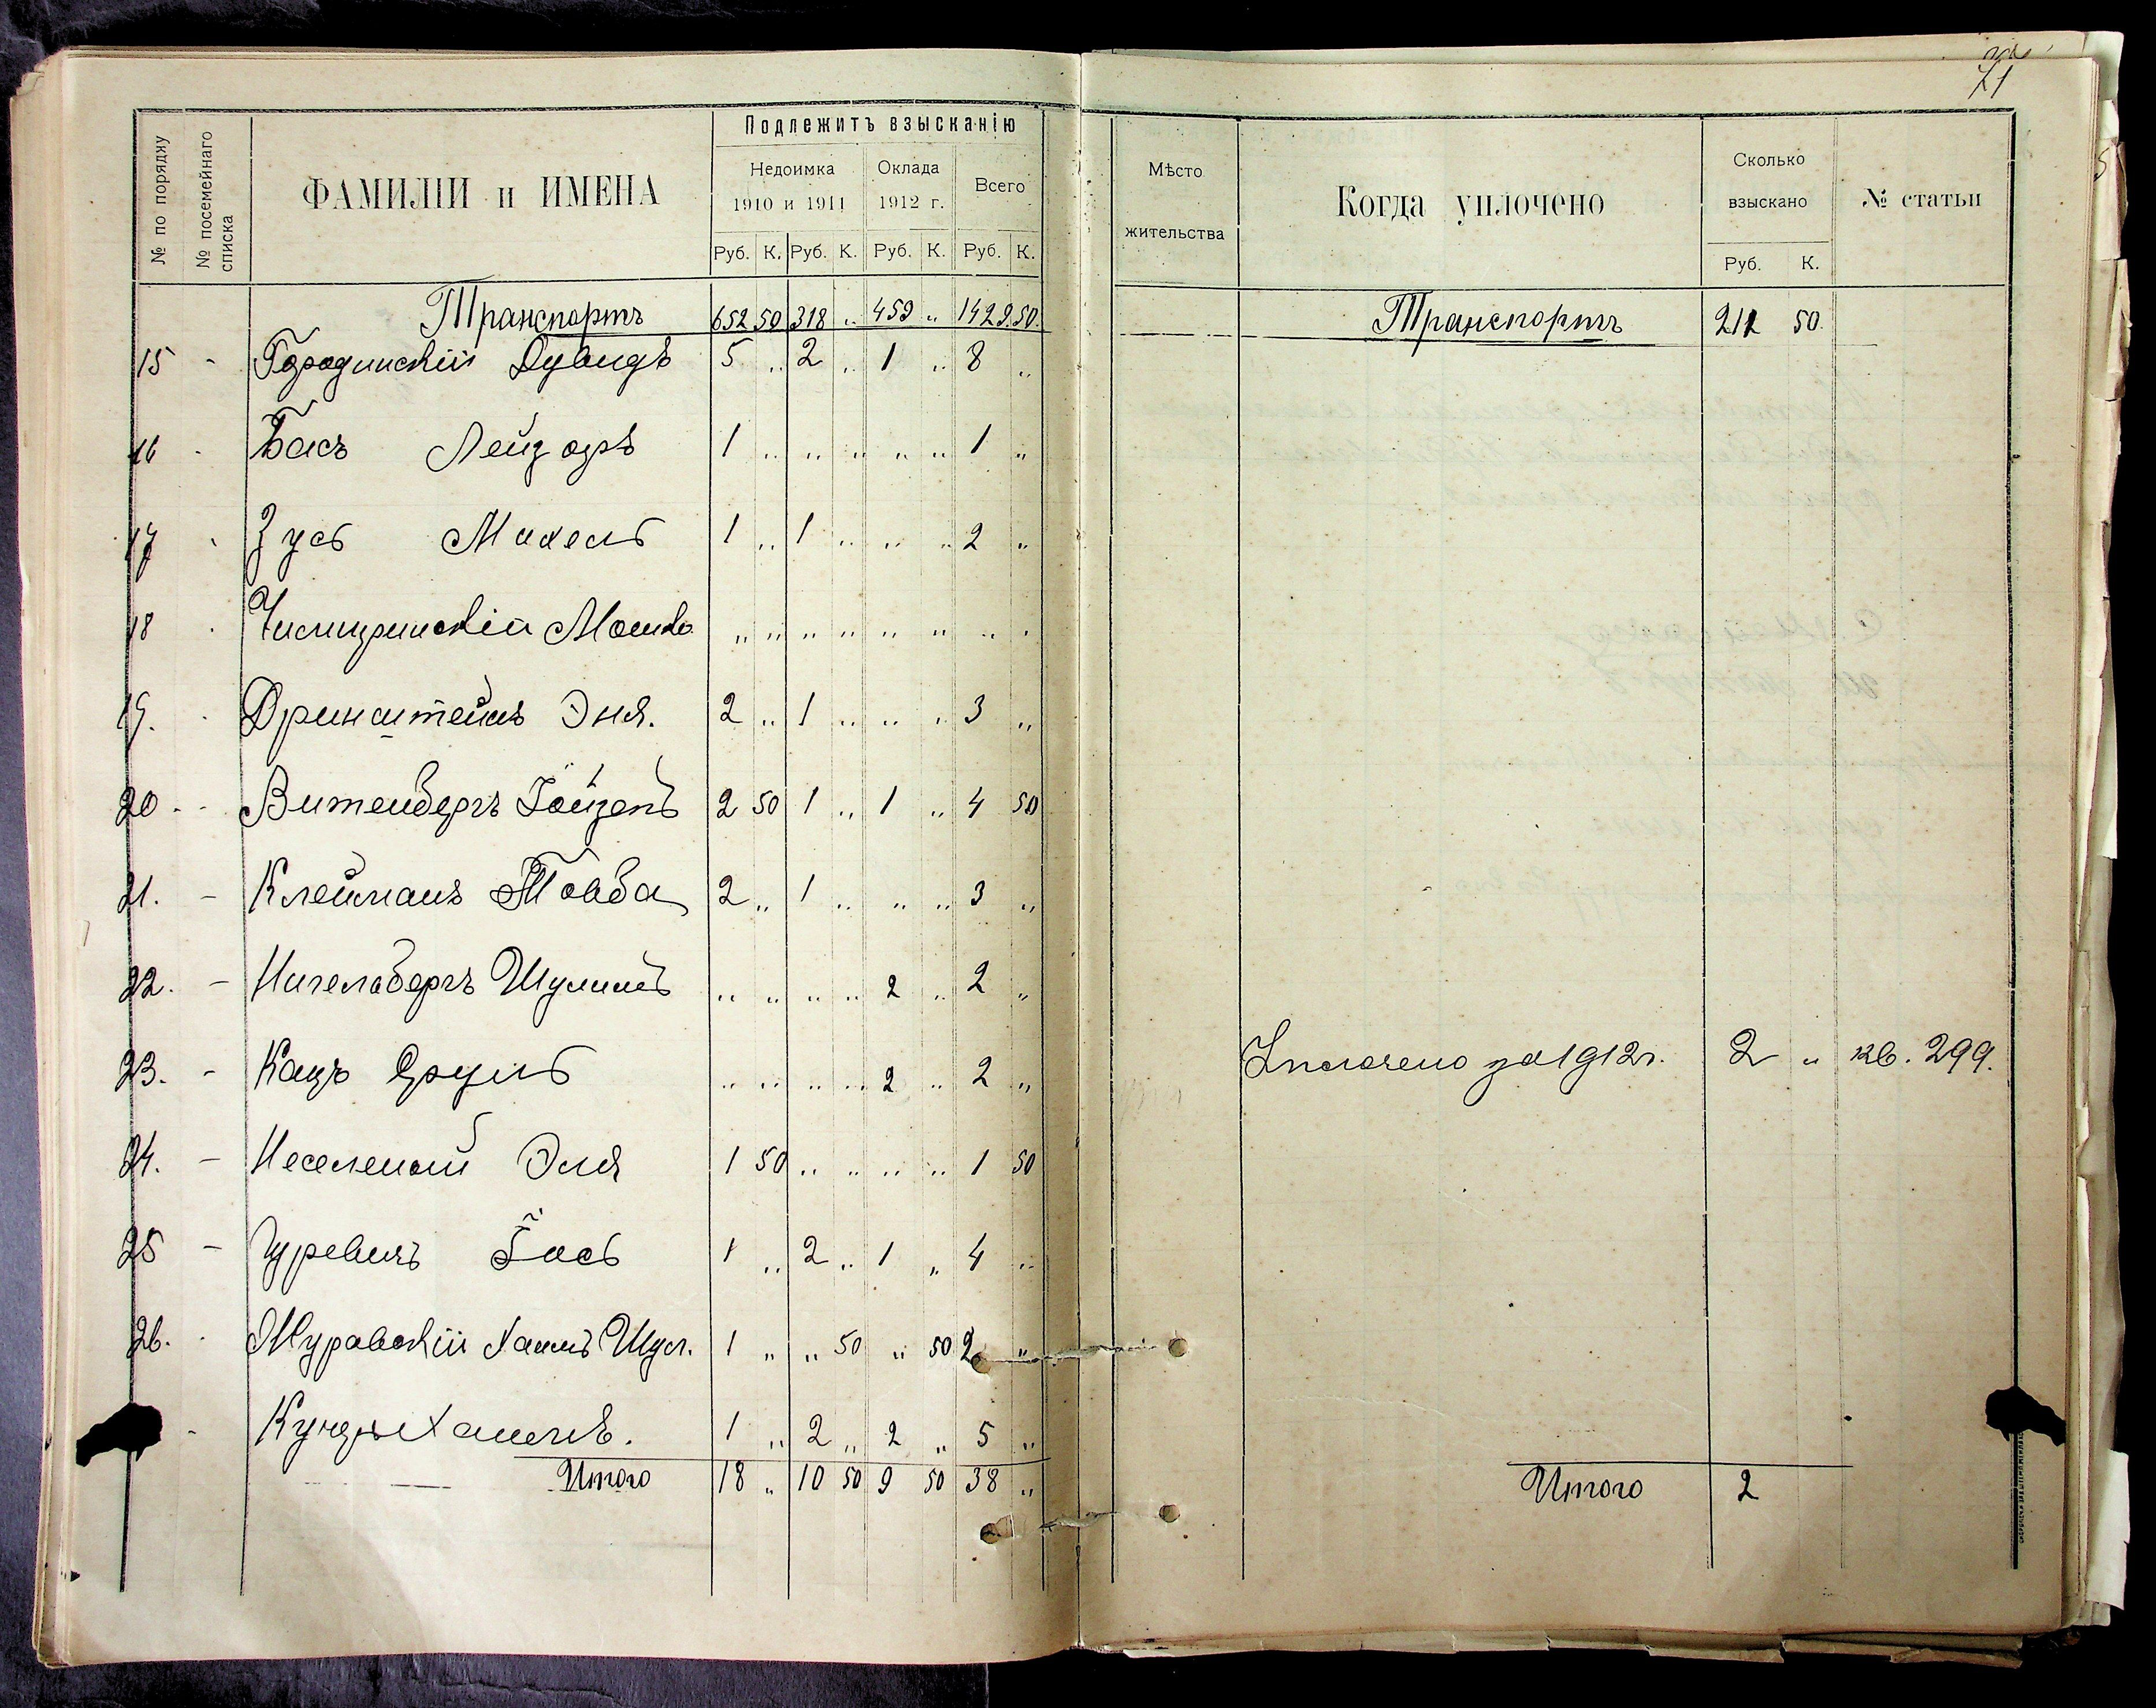 71
№ по порядку
№ посемейнаго списка
ФАМИЛІИ и ИМЕНА
Подлежитъ взысканію
Недоимка
1910 и 1911
Оклада
1912 г.
Всего
Руб. К. Руб. К. Руб. К. Руб. К.
Мѣсто
жительства
Когда уплочено
Сколько
взыскано
Руб. К.
№ статьи
Транспортъ 652 50 318 „ 459 „ 1429.50.
Транспортъ 212 50.
15 - Городинскій Дувидъ 5 „ 2 „ 1 „ 8 „
16 - Басъ Лейзоръ 1 „ „ „ „ „ 1 „
17 Зусь Михель 1 „ 1 „ „ „ 2 „
18 Мошко „ „ „ „ „ „ „ „
19. Эня. 2 „ 1 „ „ „ 3 „
20 - Витенбергъ 2 50 1 „ 1 „ 4 50
21. - Клейманъ Товба 2 „ 1 „ „ „ 3 „
22. - Шулимъ „ „ „ „ 2 „ 2 „
23. - Кацъ Сруль „ „ „ „ 2 „ 2 „
Уплочено за 1912 г. 2 „ кв. 299.
24. - Эля 1 50 „ „ „ „ 1 50
25 - Гуревичъ 1 „ 2 „ 1 „ 4 „
26. Муравскій Хаимъ Шул. 1 „ „ 50 „ 50 2 „
- 1 „ 2 „ 2 „ 5 „
Итого 18 „ 10 50 9 50 38 „
Итого 2